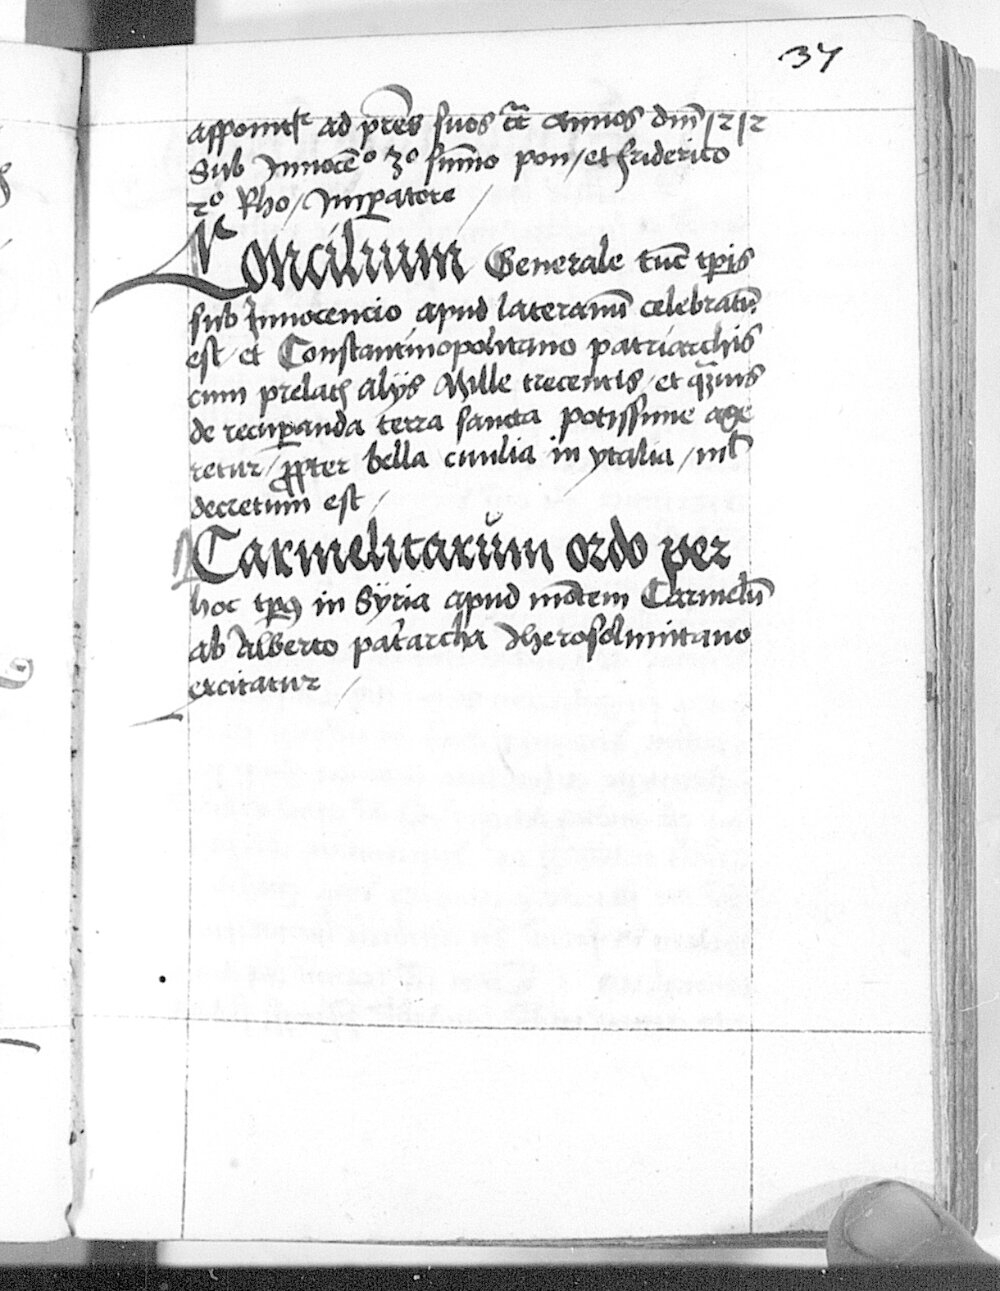 37
apponitr ad pr̄es suos c̄ā annos dnī 1212
Sub Innocē° 3° sūmo pon / et friderico
2° Rho / Imp̄atore
Concilium Generale tūc tp̄is
sub Innocencio apud lateranū celebratū
est / et Constantinopolitano patriarchis
cum prelatis alijs Mille trecentis / et q̄uis
de recup̄anda terra sancta potissime age
retur / ꝓpter bella ciuilia in ytalia / nil
decretum est /
Carmelitarum ordo per
hoc tp̄s in Syria apud mōtem Carmelū
ab Alberto pat̄archa Iherosolmittano
excitatur /